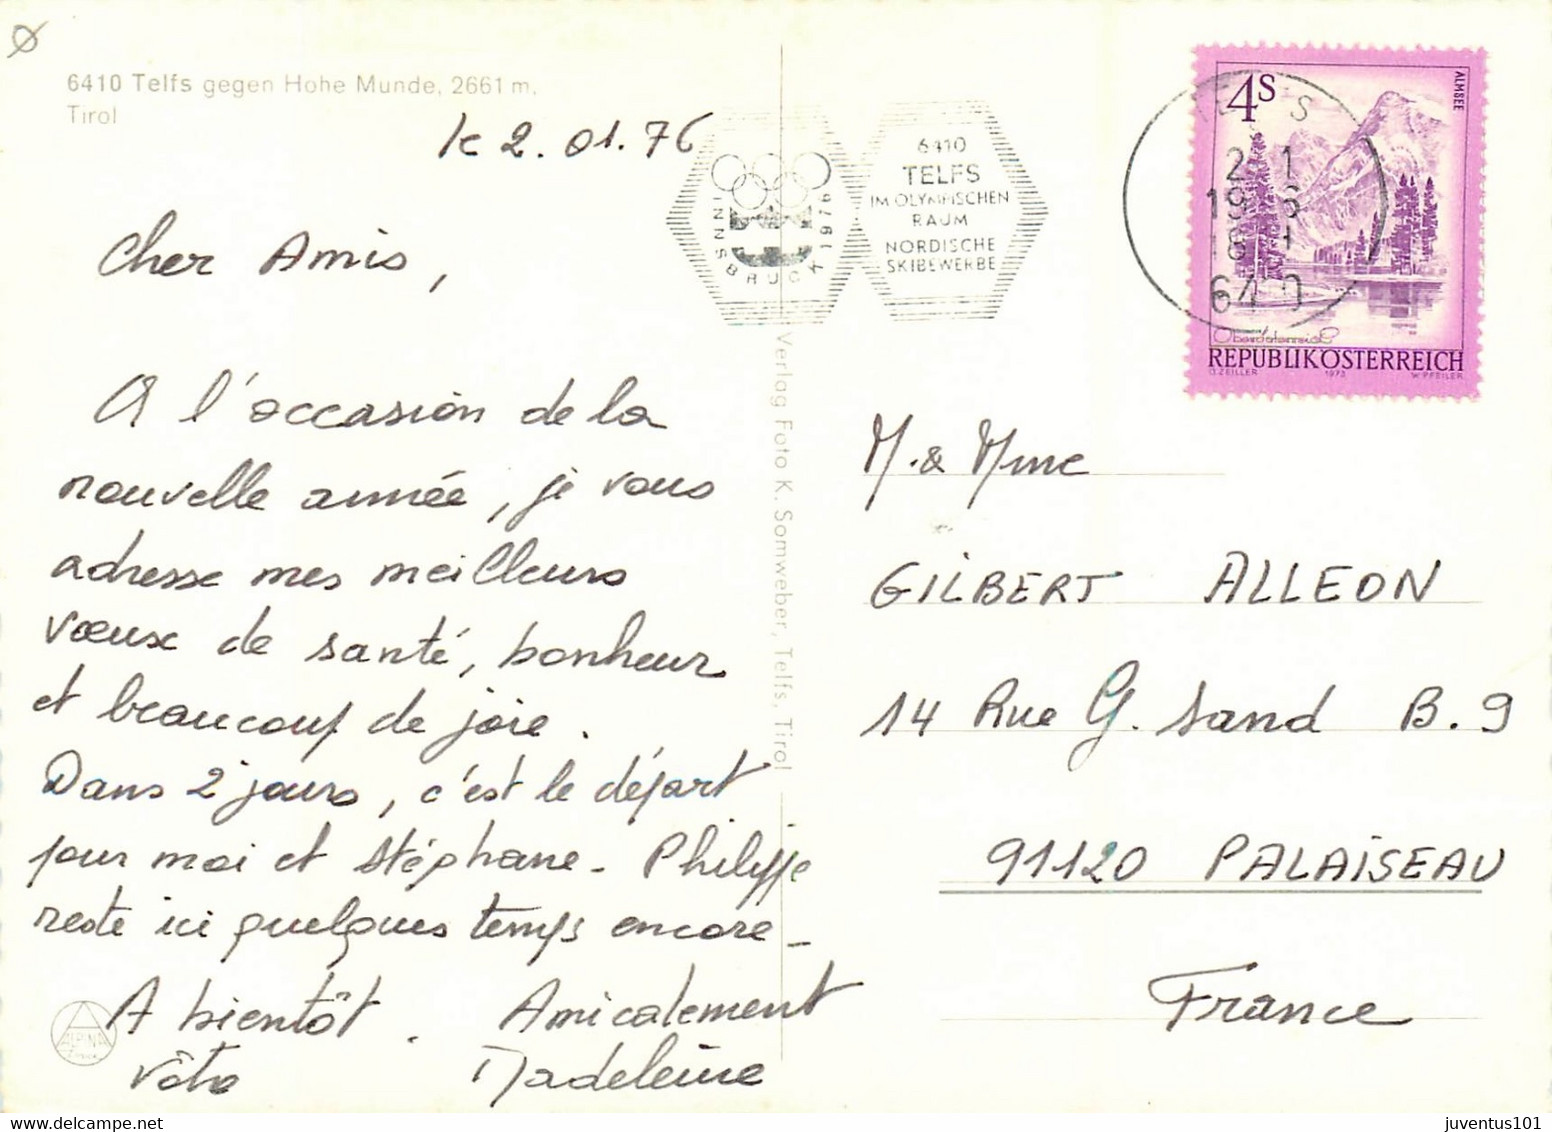 6410 Telfs gegen Hohe Munde, 2661 m.
Tirol
le 2.01.76
Cher Amis,
A l'occasion de la
nouvelle année, je vous
adresse mes meilleurs
vœux de santé, bonheur
et beaucoup de joie.
Dans 2 jours, c'est le départ
pour moi et Stéphane - Philippe
reste ici quelques temps encore -
A bientôt. Amicalement
Votre Madeleine
ALPINA
Verlag Foto K. Somweber, Telfs, Tirol
INNSBRUCK 1976
6410
TELFS
IM OLYMPISCHEN
RAUM
NORDISCHE
SKIBEWERBE
4S
ALMSEE
REPUBLIK ÖSTERREICH
O.ZEILLER 1973 W.PFEILER
M. & Mme
GILBERT ALLEON
14 Rue G. Sand B.9
91120 PALAISEAU
France
juventus101